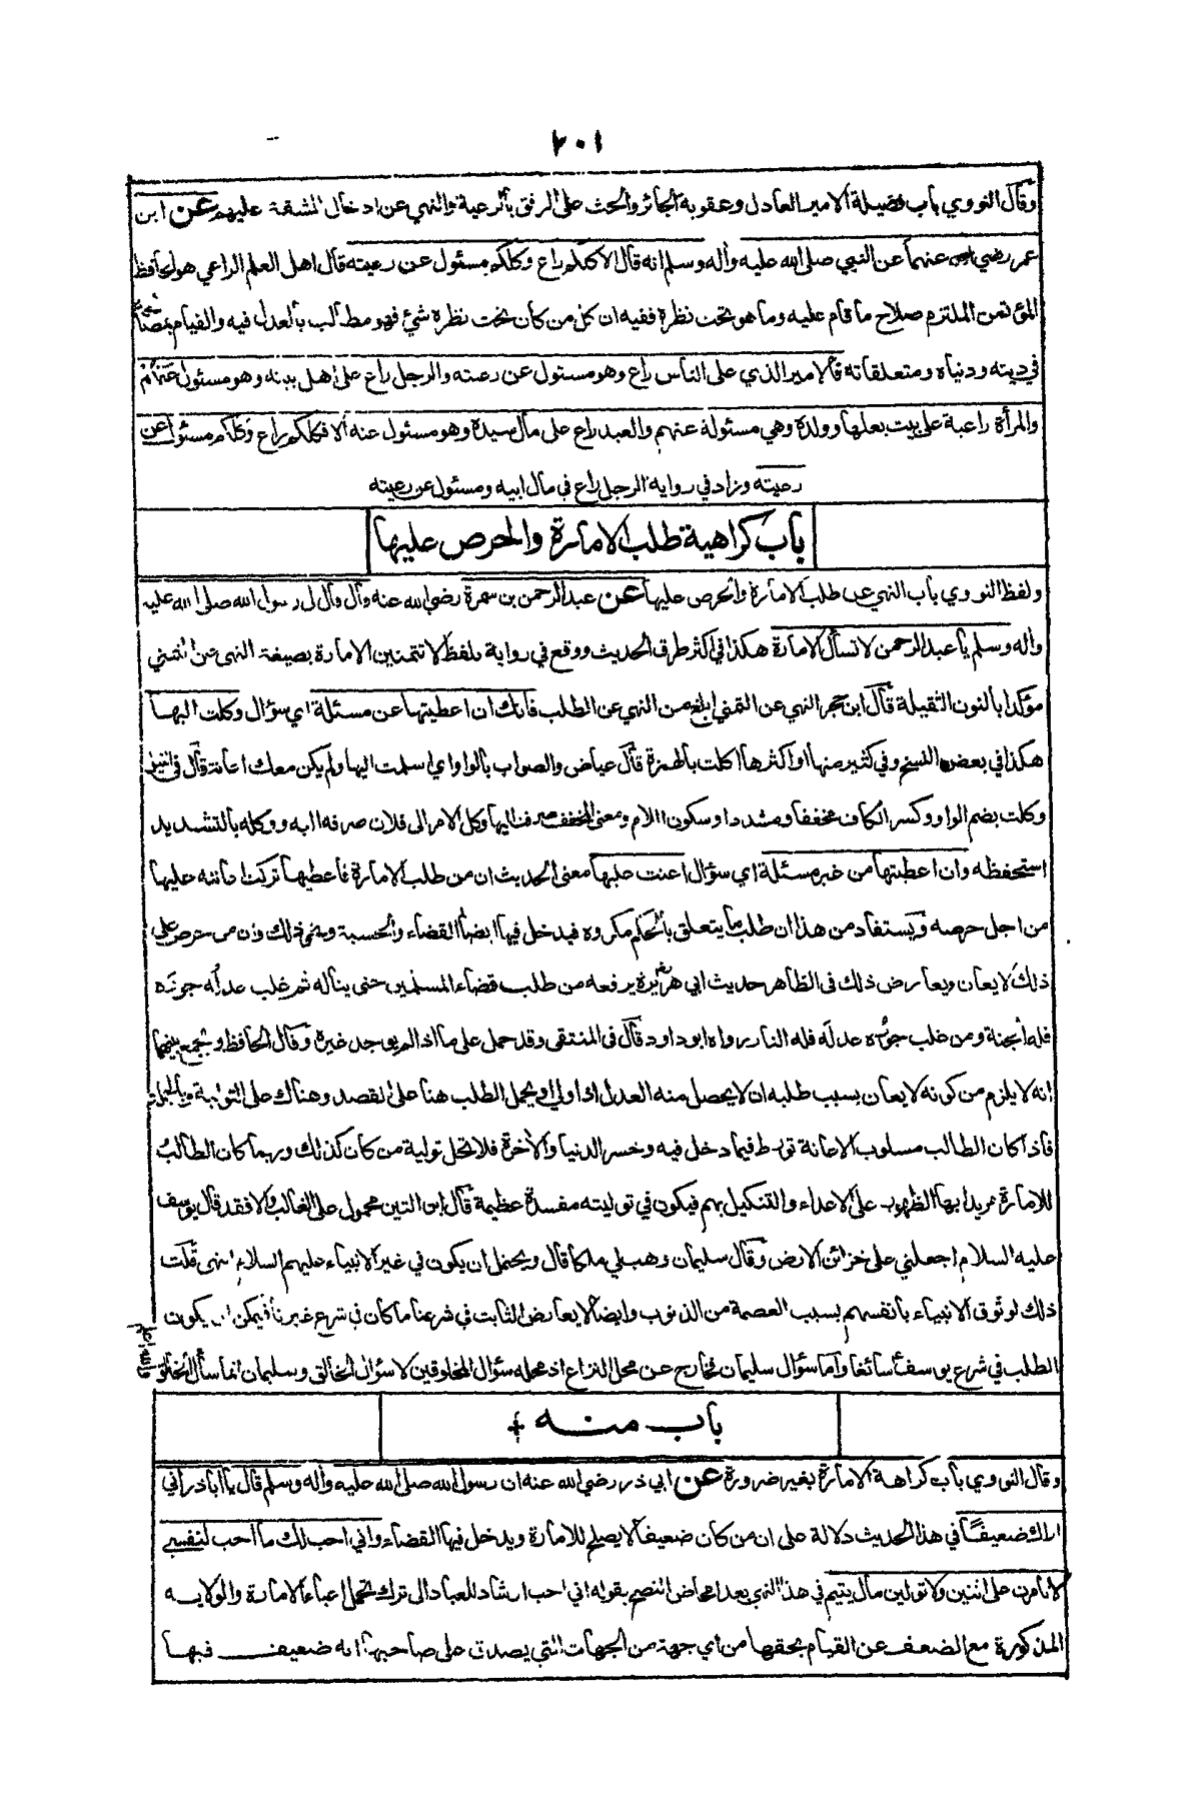 ٢٠١
وقال النووي باب فضيلة الامير العادل وعقوبة الجائر والحث على الرفق بالرعية والنهي عن ادخال المشقة عليهم عن ابن
عمر رضي الله عنهما عن النبي صلى الله عليه وأله وسلم انه قال الا كلكم راع وكلكم مسئول عن رعيته قال اهل العلم الراعي هو الحافظ
المؤتمن الملتزم صلاح ما قام عليه وما هو تحت نظرة ففيه ان كل من كان تحت نظرة شئ فهو مطالب بالعدل فيه والقيام بمصالحه
في دينه ودنياه ومتعلقاته فالامير الذي على الناس راع وهو مسئول عن رعيته والرجل راع على اهل بيته وهو مسئول عنهم
والمرأة راعية على بيت بعلها وولدة وهي مسئولة عنهم والعبد راع على مال سيدة وهو مسئول عنه ألا فكلكم راع وكلكم مسئول عن
رعيته وزاد في رواية الرجل راع في مال ابيه ومسئول عن رعيته
باب كراهية طلب الامارة والحرص عليها
ولفظ النووي باب النهي عن طلب الامارة والحرص عليها عن عبد الرحمن بن سمرة رضي الله عنه قال قال لي رسول الله صلى الله عليه
وأله وسلم يا عبد الرحمن لا تسأل الامارة هكذا في اكثر طرق الحديث ووقع في رواية بلفظ لا تتمنين الامارة بصيغة النهي عن التمني
مؤكدا بالنون الثقيلة قال ابن حجر النهي عن التمني ابلغ من النهي عن الطلب فانك ان اعطيتها عن مسئلة اي سؤال وكلت اليها
هكذا في بعض النسخ وفي كثير منها او اكثرها اكلت بالهمزة قال عياض والصواب بالواو اي اسلمت اليها ولم يكن معك اعانة قال في الفتح
وكلت بضم الواو وكسر الكاف مخففا ومشددا وسكون اللام ومعنى المخفف صرف اليها وكل الامر الى فلان صرفه اليه ووكله بالتشديد
استحفظه وان اعطيتها من غير مسئلة اي سؤال اعنت عليها معنى الحديث ان من طلب الامارة فاعطيها تركت اعانته عليها
من اجل حرصه ويستفاد من هذا ان طلب ما يتعلق بالحكم مكروه فيدخل فيها ايضا القضاء والحسبة ونحو ذلك وان من حرص على
ذلك لا يعان ويعارض ذلك في الظاهر حديث ابي هريرة يرفعه من طلب قضاء المسلمين حتى يناله ثم غلب عدله جورَه
فله الجنة ومن غلب جورُه عدلَه فله النار رواه ابو داود قال في المنتقى وقد حمل على ما اذا لم يوجد غيرة وقال الحافظ ويجمع بينهما
انه لا يلزم من كونه لا يعان بسبب طلبه ان لا يحصل منه العدل اذا ولي او يحمل الطلب هنا على القصد وهناك على التولية وبالجملة
فاذا كان الطالب مسلوب الاعانة تورط فيما دخل فيه وخسر الدنيا والأخرة فلا تحل تولية من كان كذلك وربما كان الطالب
للامارة مريدا بها الظهور على الاعداء والتنكيل بهم فيكون في توليته مفسدة عظيمة قال ابن التين محمول على الغالب والا فقد قال يوسف
عليه السلام اجعلني على خزائن الارض وقال سليمان وهب لي ملكا قال ويحتمل ان يكون في غير الانبياء عليهم السلام انتهى قلت
ذلك لوثوق الانبياء بانفسهم بسبب العصمة من الذنوب وايضا لا يعارض الثابت في شرعنا ما كان في شرع غيرنا فيمكن ان يكون
الطلب في شرع يوسف سائغا واما سؤال سليمان فخارج عن محل النزاع اذ محله سؤال المخلوقين لا سؤال الخالق وسليمان انما سأل الخالق
باب منه
وقال النووي باب كراهة الامارة بغير ضرورة عن ابي ذر رضي الله عنه ان رسول الله صلى الله عليه وأله وسلم قال يا أبا ذر اني
اراك ضعيفاً في هذا الحديث دلالة على ان من كان ضعيفا لا يصلح للامارة ويدخل فيها القضاء واني احب لك ما احب لنفسي
لا تامرن على اثنين ولا تولين مال يتيم في هذا النهي بعد امحاض النصح بقوله اني احب ارشاد للعباد الى ترك تحمل اعباء الامارة والولاية
المذكورة مع الضعف عن القيام بحقها من اي جهة من الجهات التي يصدق على صاحبها انه ضعيف فيها